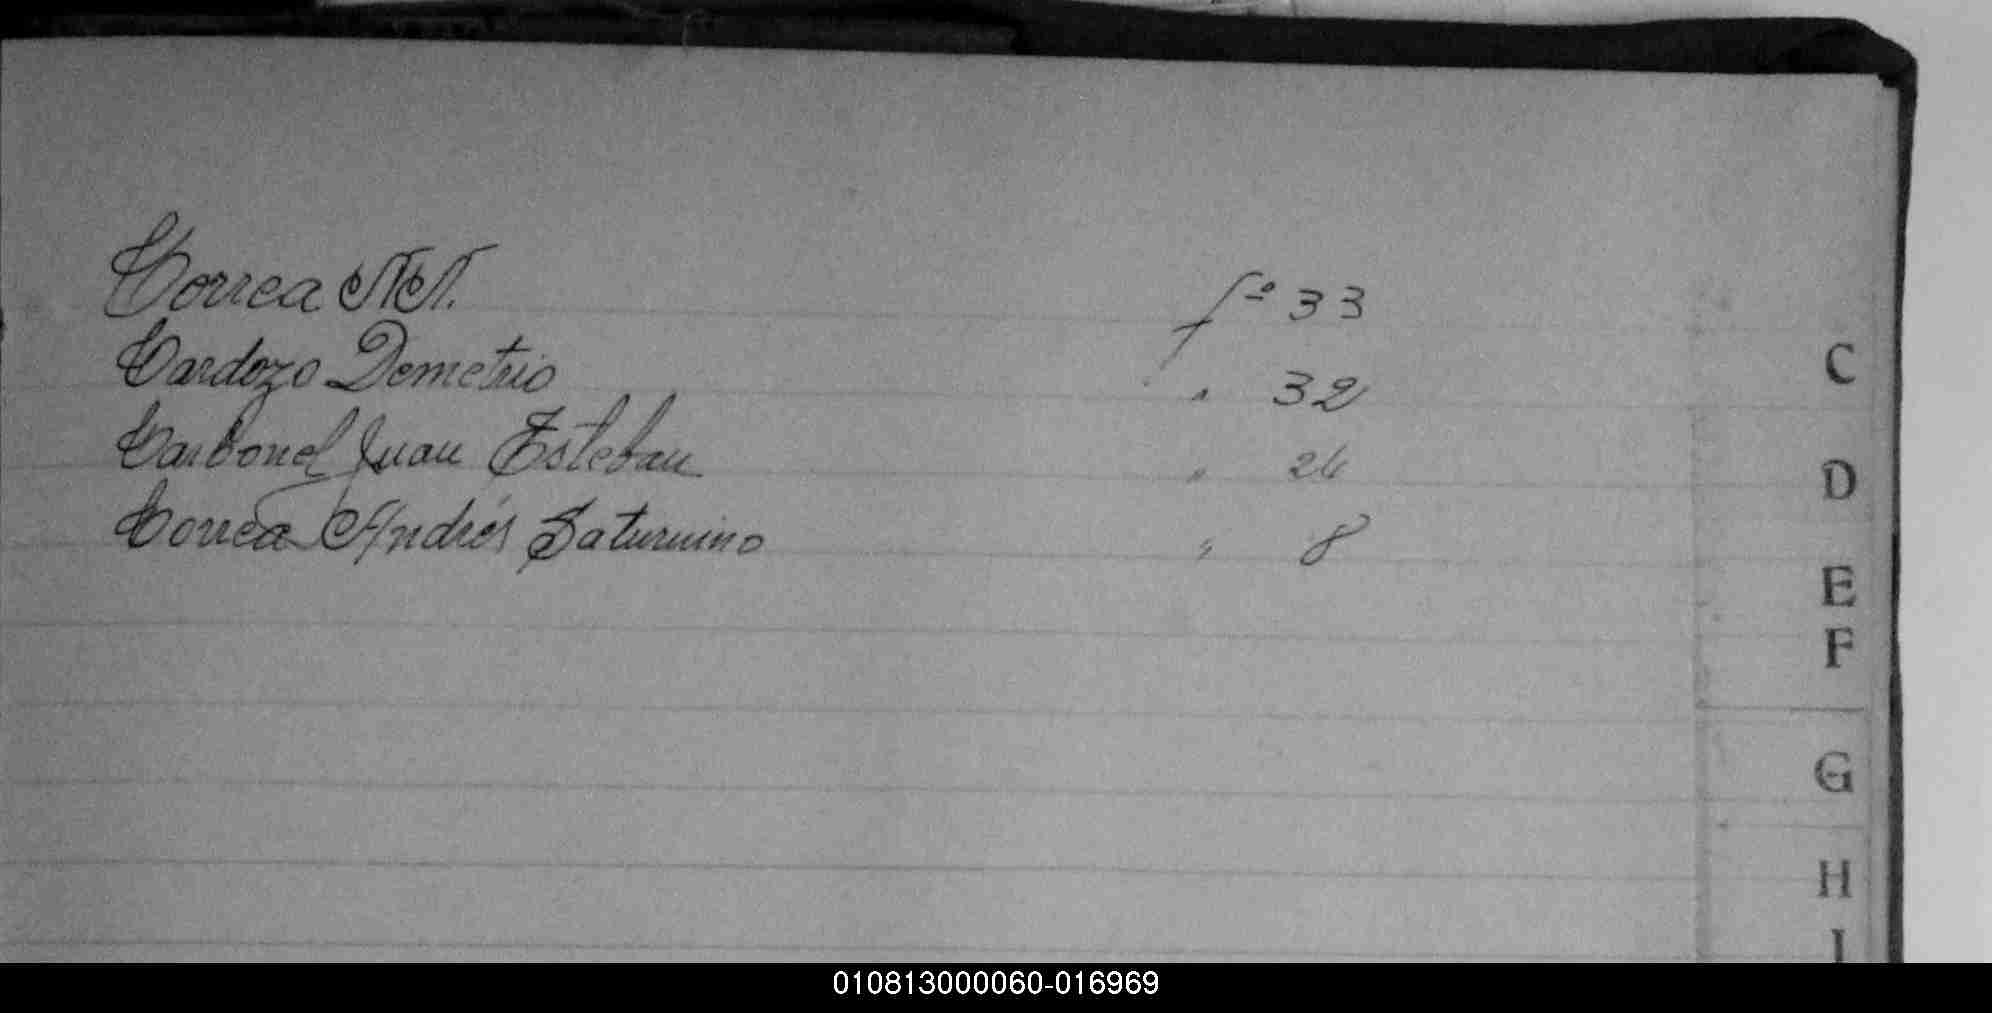 Correa NN. fº 33
Cardozo Demetrio " 32
Carbonel Juan Esteban " 24
Correa Andrés Saturnino " 8
C
D
E
F
G
H
I
010813000060-016969